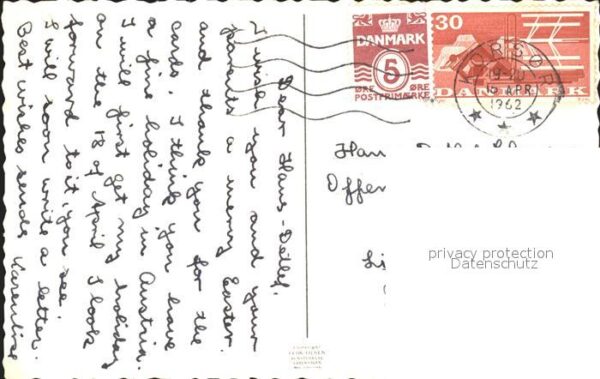 Dear Hans-Detlef.
I wish you and your
parents a merry Easter.
and thank you for the
cards. I think you have
a fine holiday in Austria.
I will first get my holiday
on the 18 of April I look
forward to it, you see.
I will soon write a letter.
Best wishes sends
DANMARK
5
ØRE ØRE
POSTFRIMÆRKE
30
DANMARK
KORSØR
16 APR.
1962
Offen
privacy protection
Datenschutz